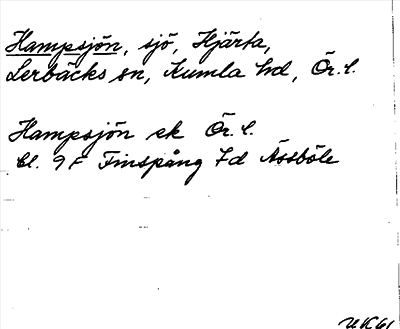 Hampsjön, sjö, Hjärta,
Lerbäcks sn, Kumla hd, Ör. l.
Hampsjön ek Ör. l.
bl. 9 F Finspång 7d Åssböle